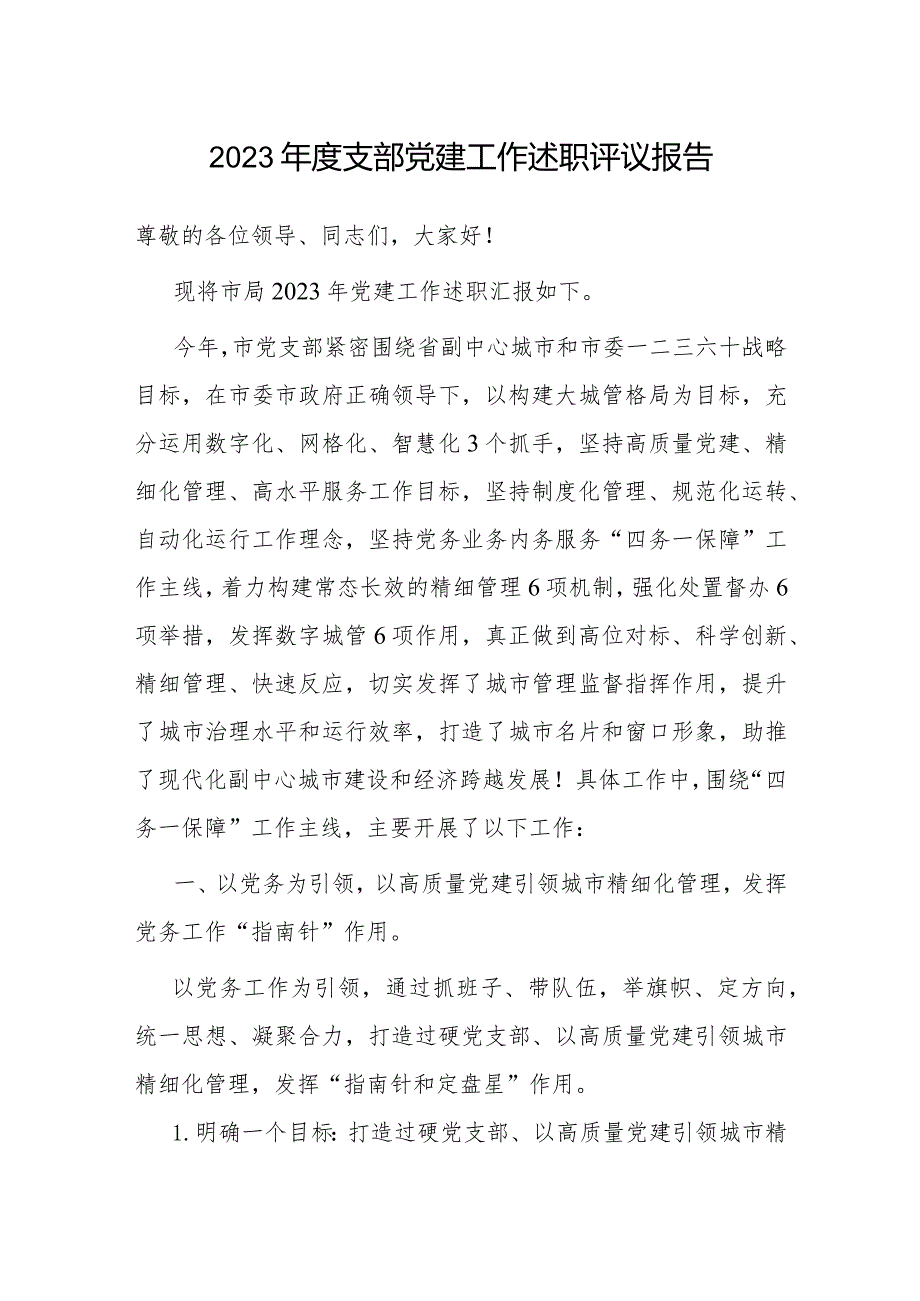 2023年度支部党建工作述职评议报告
尊敬的各位领导、同志们，大家好！
现将市局2023年党建工作述职汇报如下。
今年，市党支部紧密围绕省副中心城市和市委一二三六十战略
目标，在市委市政府正确领导下，以构建大城管格局为目标，充
分运用数字化、网格化、智慧化3个抓手，坚持高质量党建、精
细化管理、高水平服务工作目标，坚持制度化管理、规范化运转、
自动化运行工作理念，坚持党务业务内务服务“四务一保障”工
作主线，着力构建常态长效的精细管理6项机制，强化处置督办6
项举措，发挥数字城管6项作用，真正做到高位对标、科学创新、
精细管理、快速反应，切实发挥了城市管理监督指挥作用，提升
了城市治理水平和运行效率，打造了城市名片和窗口形象，助推
了现代化副中心城市建设和经济跨越发展！具体工作中，围绕“四
务一保障”工作主线，主要开展了以下工作：
一、以党务为引领，以高质量党建引领城市精细化管理，发挥
党务工作“指南针”作用。
以党务工作为引领，通过抓班子、带队伍，举旗帜、定方向，
统一思想、凝聚合力，打造过硬党支部、以高质量党建引领城市
精细化管理，发挥“指南针和定盘星”作用。
1.明确一个目标：打造过硬党支部、以高质量党建引领城市精